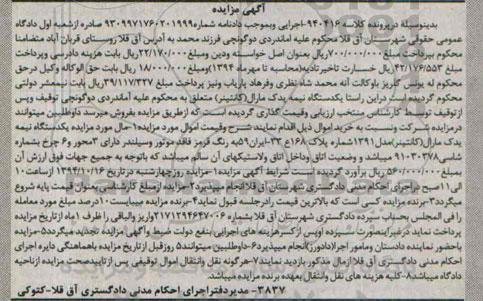 آگهی مزایده
بدینوسیله درپرونده کلاسه ۹۴۰۴۱۶-اجرایی وبموجب دادنامه شماره۹۳۰۹۹۷۱۷۶۰۲۰۱۹۹۹ صادره ازشعبه اول دادگاه
عمومی حقوقی شهرستان آق قلا محکوم علیه اماندردی دوگونچی فرزند محمد به آدرس آق قلا روستای قربان آباد متضامنا
محکوم بپرداخت مبلغ۷۰۰/۰۰۰/۰۰۰ریال بعنوان اصل خواسته ودین ومبلغ۲۲/۱۷۰/۰۰۰ریال بابت هزینه دادرسی وپرداخت
مبلغ ۴۲/۱۷۶/۵۵۳ریال خسارت تاخیرتادیه(محاسبه تا مهرماه ۱۳۹۴)ومبلغ ۱۸/۰۰۰/۰۰۰ریال بابت حق الوکاله وکیل درحق
محکوم له یونس گلریز باوکالت آنه محمد شاه نظری وفرهاد پاریاب ونیز پرداخت مبلغ ۳۹/۱۱۷/۳۲۷ریال بابت نیمعشر دولتی
محکوم گردیده است دراین راستا یکدستگاه نیمه یدک مارال(کانتینر) متعلق به محکوم علیه آماندردی دوگونچی توقیف وپس
ازتوقیف توسط کارشناس منتخب ارزیابی وقیمت گذاری گردیده است که ازطریق مزایده بفروش میرسد داوطلبین میتوانند
درمزایده شرکت ونسبت به خرید اموال ذیل اقدام نمایند:شرح وقیمت اموال مورد مزایده:۱حال مورد مزایده یکدستگاه نیمه
یدک مارال(کانتینر)مدل۱۳۹۱شماره پلاک ۱۶۸ع ۳۳-ایران۵۹به رنگ قرمز فاقد موتور وسیلندر دارای ۳محور و۶ چرخ بشماره
شاسی ۹۱۰۳۰۳۷۸ میباشد و وضعیت اتاق وداخل اتاق ولاستیکهای آن سالم میباشد که باتوجه به جمیع جهات فوق ارزش آن
بمبلغ ۵۶۰/۰۰۰/۰۰۰ریال برآورد گردیده است شرایط آگهی مزایده۱-مزایده روزچهارشنبه درتاریخ ۱۳۹۴/۱۰/۱۶ ازساعت ۱۰
الی۱۱صبح دراجرای احکام مدنی دادگستری شهرستان آق قلاانجام میپذیرد۲-مزایده ازمبلغ کارشناسی بعنوان قیمت پایه شروع
میگردد۳-برنده مزایده کسی است که بالاترین قیمت رادرجلسه قبول نماید۴-برنده مزایده میبایست۱۰درصد مبلغ مورد معامله
را فی المجلس بحساب سپرده دادگستری شهرستان آق قلا بشماره ۲۱۷۱۱۹۴۶۴۷۰۰۶واریز والباقی را ظرف ۱ماه ازتاریخ مزایده
پرداخت نماید درغیراینصورت سپرده اوپس ازکسرهزینه های اجرایی بنفع دولت ضبط وآگهی مزایده تجدید میگردد۵-مزایده
باحضور نماینده دادستان ومامور اجرا(دادورز)انجام میپذیرد۶-داوطلبین میتوانند۵ روزقبل ازتاریخ مزایده باهماهنگی دایره اجرای
احکام مدنی دادگستری آق قلا ازمال مذکور بازدید نمایند۷-هرگونه نقل وانتقال اموال توقیفی پس ازتاییدصحت مزایده ازناحیه
دادگاه میباشد۸-کلیه هزینه های نقل وانتقال بعهده برنده مزایده میباشد.
۳۸۳۷- مدیردفتراجرای احکام مدنی دادگستری آق قلا-کتوکی